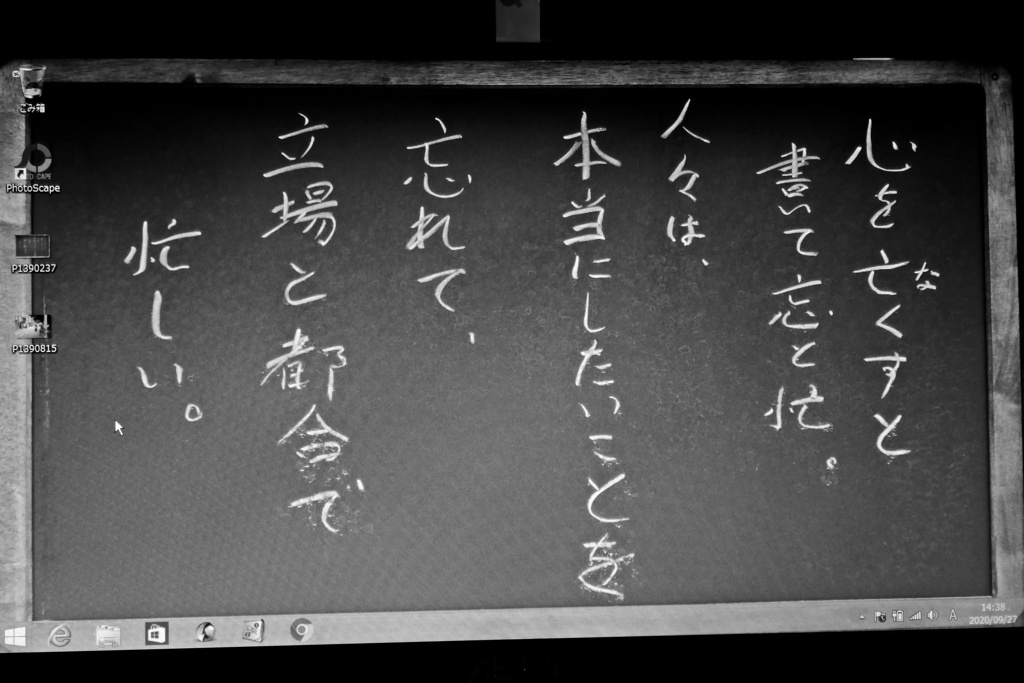 心を亡くすと
な
書いて忘と忙。
人々は、
本当にしたいことを
忘れて、
立場と都合で
忙しい。
ごみ箱
PhotoScape
P1390237
P1390815
A
14:38
2020/09/27